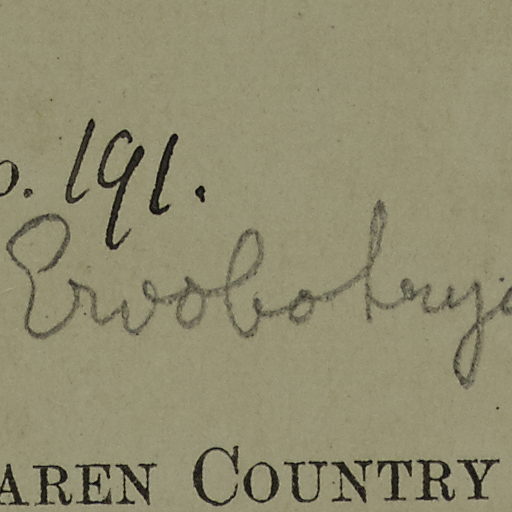 o. 191.
Eriobotrya
AREN COUNTRY